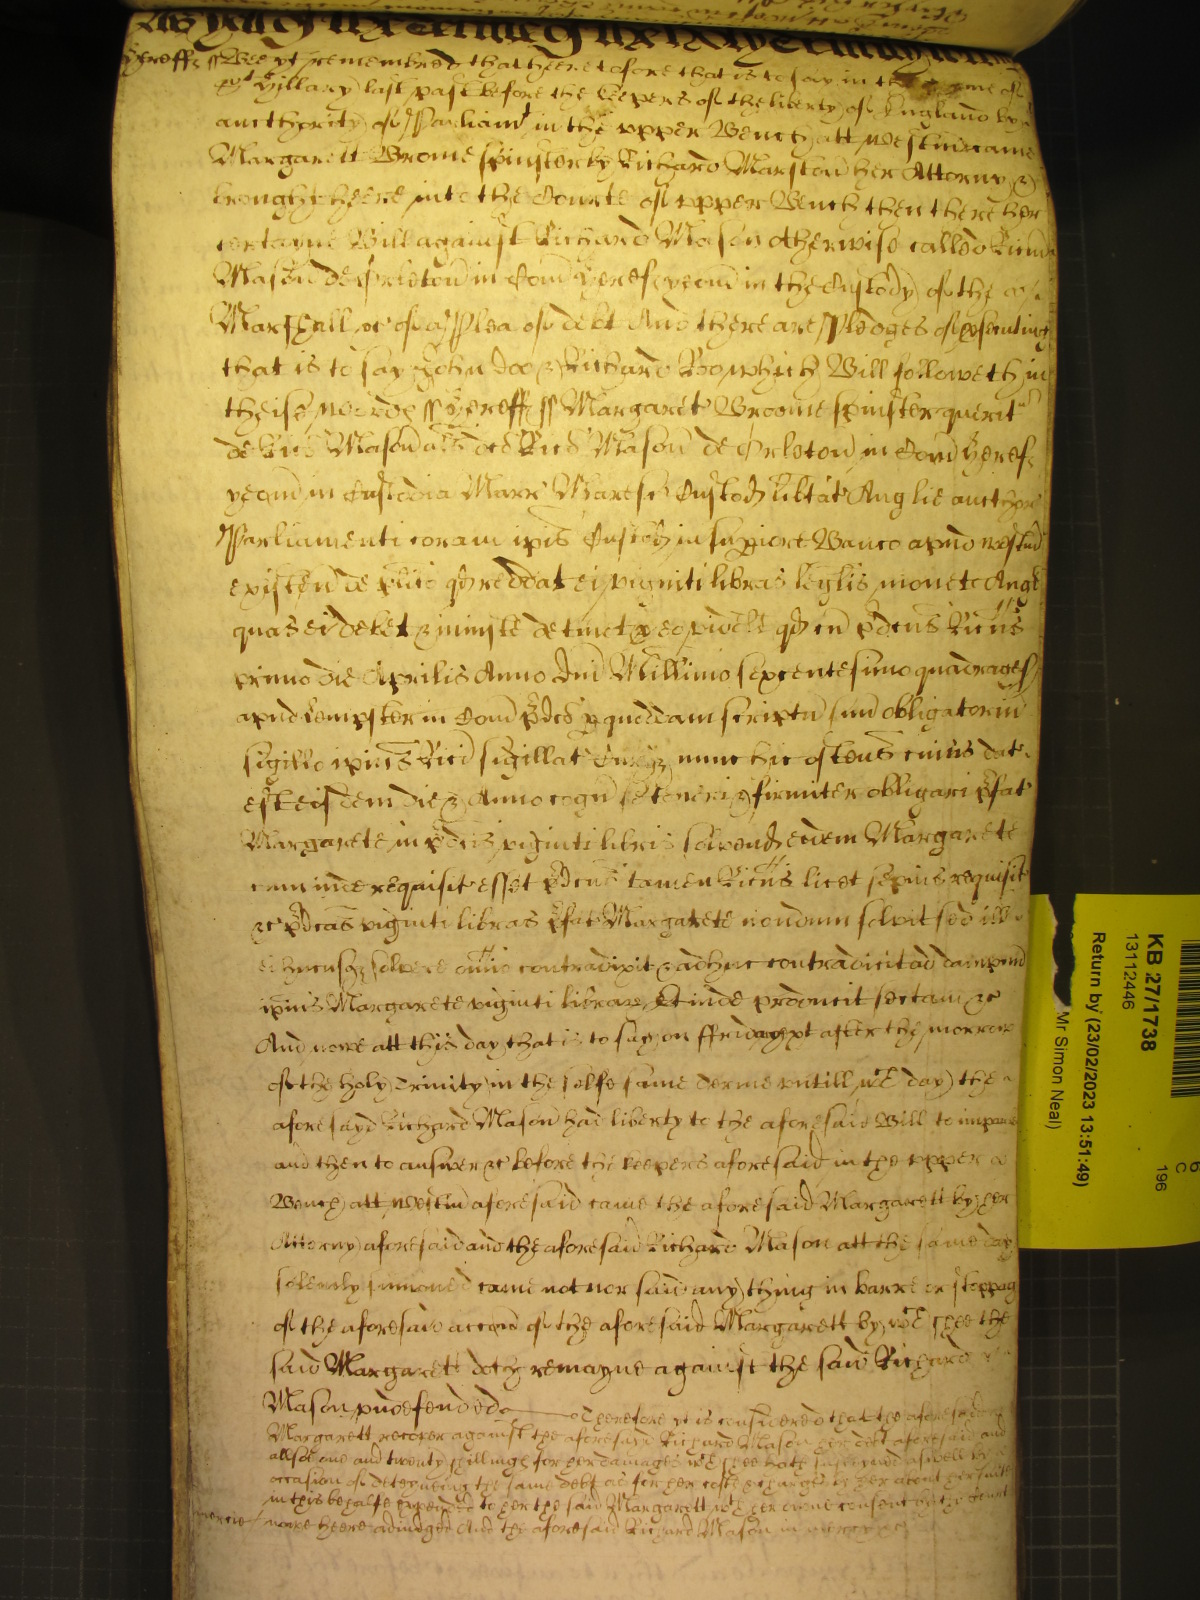 Hereff ss Bee yt remembred that heeretofore that is to say in the Terme of
Hillary last past before the Keepers of the liberty of England by
aucthority of Parliamt in the upper Bench att Westm came
Margarett Brome spinster by Richard Marston her Attorny &
brought heere into the Courte of upper Bench then there her
certayne Bill against Richard Mason otherwise called Ricm
Mason de Orleton in Com Heref yeom in the Custody of the
Marshall &c of a Plea of debt And there are Pledges of psecuting
that is to say John Doo & Richard Roo which Bill followeth in
theise words ss Hereff ss Margaret Broome spinster querit
de Rico Mason als dco Rico Mason de Orleton in Com Heref
yeom in Custodia Marr Maresc Custod libtat Anglie aucthor
Parliamenti coram ipis Custod in supiori Banco apud Westm
existen de plito qd reddat ei viginti libras leglis monete Angl
quas ei debet & iniuste detinet p eo videlt qd cu pdcus Ricus
primo die Aprilis Anno Dni Millimo sexcentesimo quadrages
apud Lempster in Com pdco p quoddam scriptu suu obligatoriu
sigillo ipius Rici sigillat Curiq nunc hic ostens cuius dat
est eisdem die & Anno cogn se teneri & firmiter obligari pfat
Margarete in pdcis viginti libris solvend eidem Margarete
cum inde requisit esset pdcus tamen Ricus licet sepius requisit
&c pdcas viginti libras pfat Margarete nondum solvit sed ill
ei hucusq solvere omio contradixit & adhuc contradicit ad dampnu
ipius Margarete viginti librar Et inde producit sectam &c
And nowe att this day that is to say on ffriday next after the morrow
of the holy Trinity in the selfe same Terme untill wch day the
aforesayd Richard Mason had liberty to the aforesaid Bill to impare
and then to answer &c before the keepers aforesaid in the upper
Bench att Westm aforesaid came the aforesaid Margarett by her
Attorny aforesaid and the aforesaid Richard Mason att the same day
solemly sumoned came not nor said any thing in barre or stoppag
of the aforesaid accon of the aforesaid Margarett by wch shee the
said Margarett doth remayne against the said Richard
Mason undefended Therefore yt is considered that the aforesaid
Margarett recover against the aforesayd Richard Mason her debt aforesaid and
allsoe one and twenty shillings for her damages wch shee hath susteyned aswell by
occasion of deteyneing the same debt as for her costs & charges by her about her suite
in this behalfe expended to her the said Margarett wth her owne consent by the Court
mercie nowe heere adiudged And the aforesaid Richard Mason in mercy &c
KB 27/1738
13112446
Return by (23/02/2023 13:51:49)
Mr Simon Neal)
196
C
6